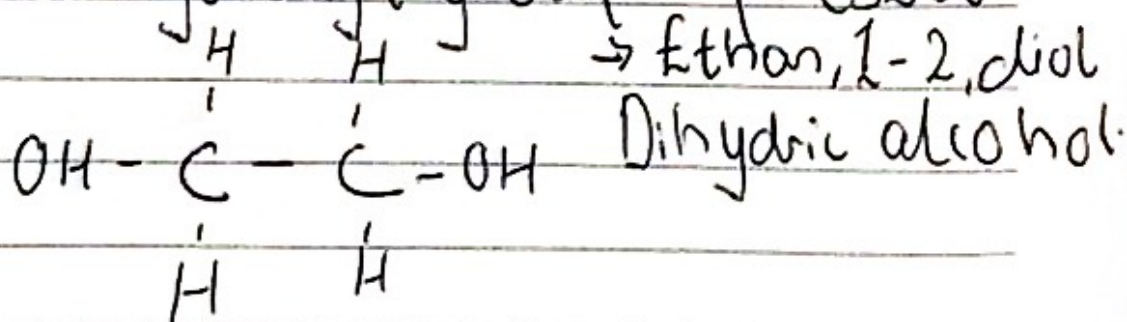 H H → Ethan, 1-2, diol
OH - C - C - OH Dihydric alcohol.
H H